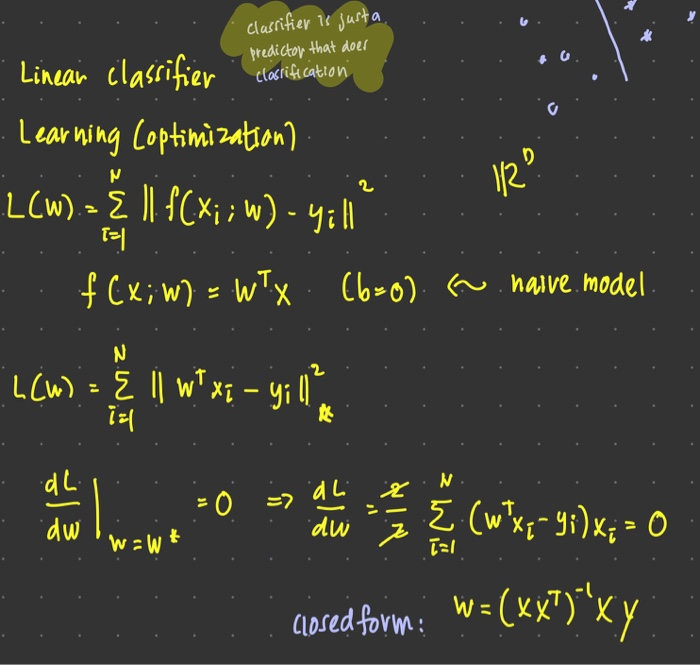 classifier is just a
predictor that does
classification
Linear classifier
Learning (optimization)
L(w) = Σ_{i=1}^{N} || f(x_i; w) - y_i ||^2
ℝ^D
f(x; w) = w^T x (b=0) ← naive model
L(w) = Σ_{i=1}^{N} || w^T x_i - y_i ||^2 *
dL/dw |_{w=w*} = 0 => dL/dw = 2/2 Σ_{i=1}^{N} (w^T x_i - y_i) x_i = 0
closed form: w = (XX^T)^{-1} X y